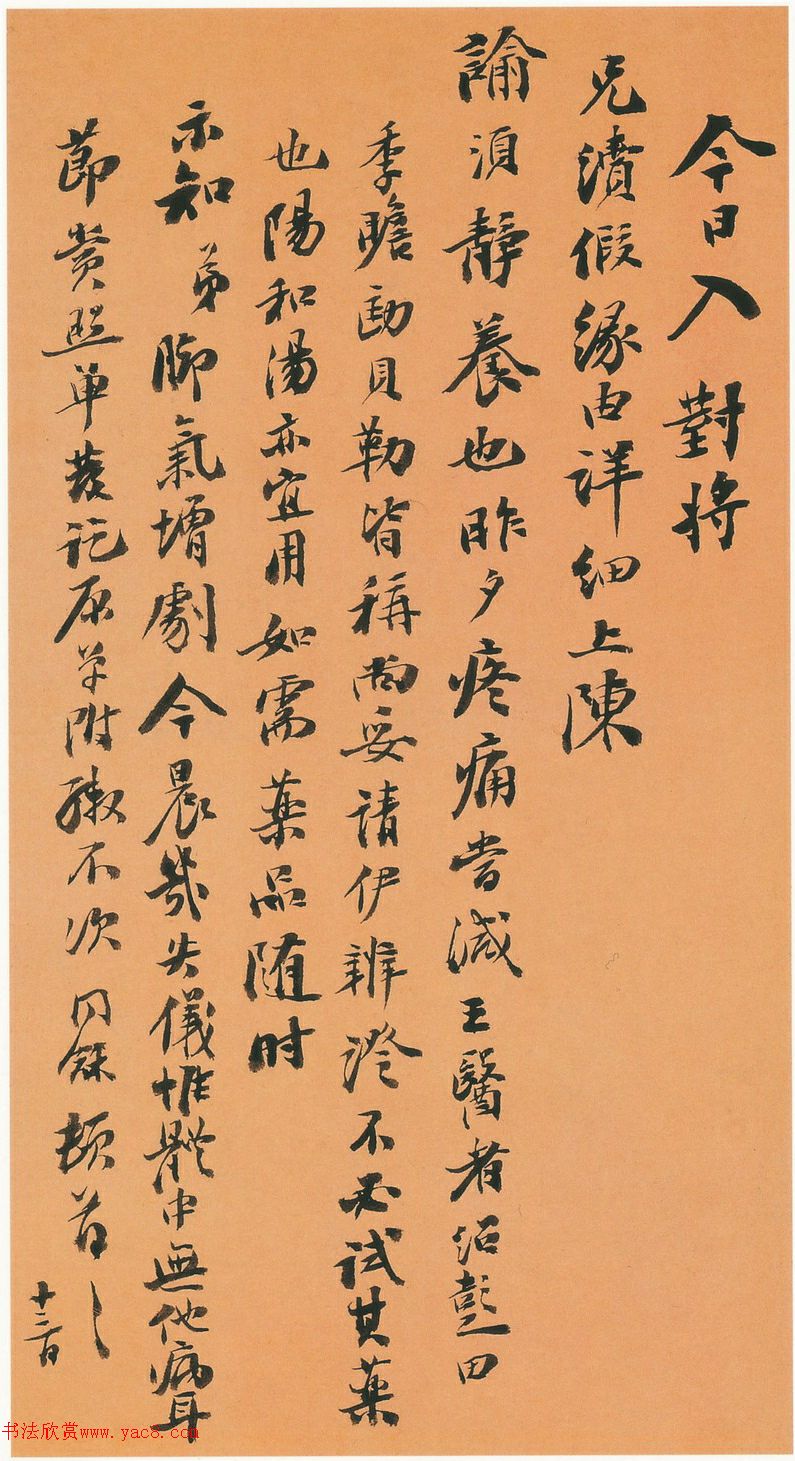 今日入對將
兄續假緣由詳細上陳
諭須靜養也昨夕疼痛當減王醫者紹彭田
季瞻勛貝勒皆稱尚妥請伊辨證不必試其藥
也陽和湯亦宜用如需藥品随时
示知弟腳氣增劇今晨幾失儀惟體中無他病耳
節賞照單發訖原單附繳不次同龢頓首
十三日
书法欣赏www.yac8.com